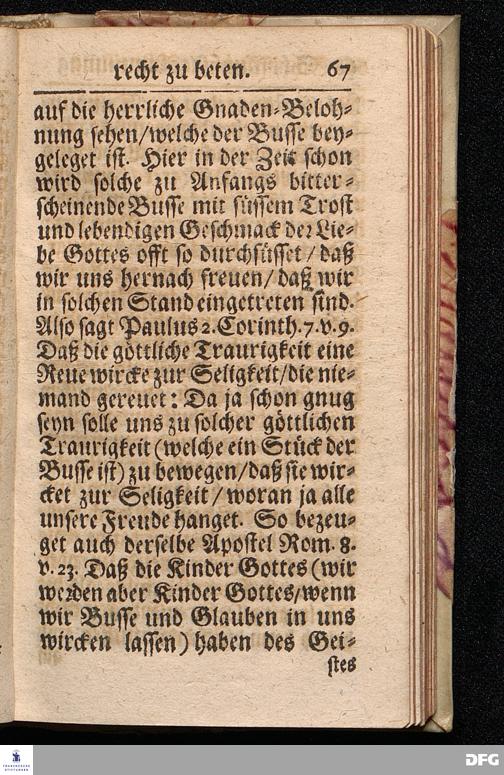 recht zu beten. 67
auf die herrliche Gnaden-Beloh-
nung sehen/welche der Busse bey-
geleget ist. Hier in der Zeit schon
wird solche zu Anfangs bitter-
scheinende Busse mit süssem Trost
und lebendigen Geschmack der Lie-
be Gottes offt so durchsüsset/ daß
wir uns hernach freuen/ daß wir
in solchen Stand eingetreten sind.
Also sagt Paulus 2. Corinth. 7. v. 9.
Daß die göttliche Traurigkeit eine
Reue wircke zur Seligkeit/die nie-
mand gereuet: Da ja schon gnug
seyn solle uns zu solcher göttlichen
Traurigkeit (welche ein Stück der
Busse ist) zu bewegen/daß sie wir-
cket zur Seligkeit/ woran ja alle
unsere Freude hanget. So bezeu-
get auch derselbe Apostel Rom. 8.
v. 23. Daß die Kinder Gottes (wir
werden aber Kinder Gottes/wenn
wir Busse und Glauben in uns
wircken lassen) haben des Gei-
stes
FRANCKESCHE
STIFTUNGEN
DFG